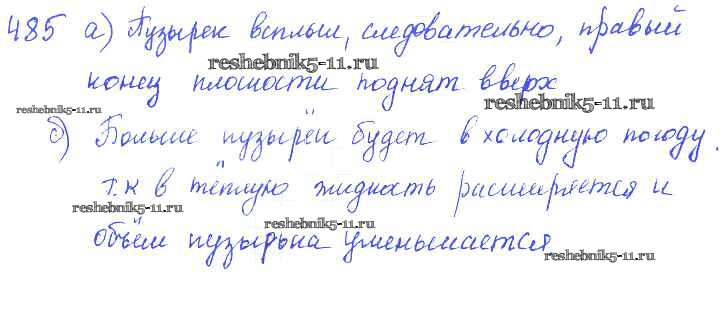 485 а) Пузырек всплыл, следовательно, правый
reshebnik5-11.ru
конец плоскости поднят вверх
reshebnik5-11.ru
reshebnik5-11.ru
б) Больше пузырёк будет в холодную погоду,
т.к в тёплую жидкость расширяется и
reshebnik5-11.ru
reshebnik5-11.ru
объём пузырька уменьшается
reshebnik5-11.ru